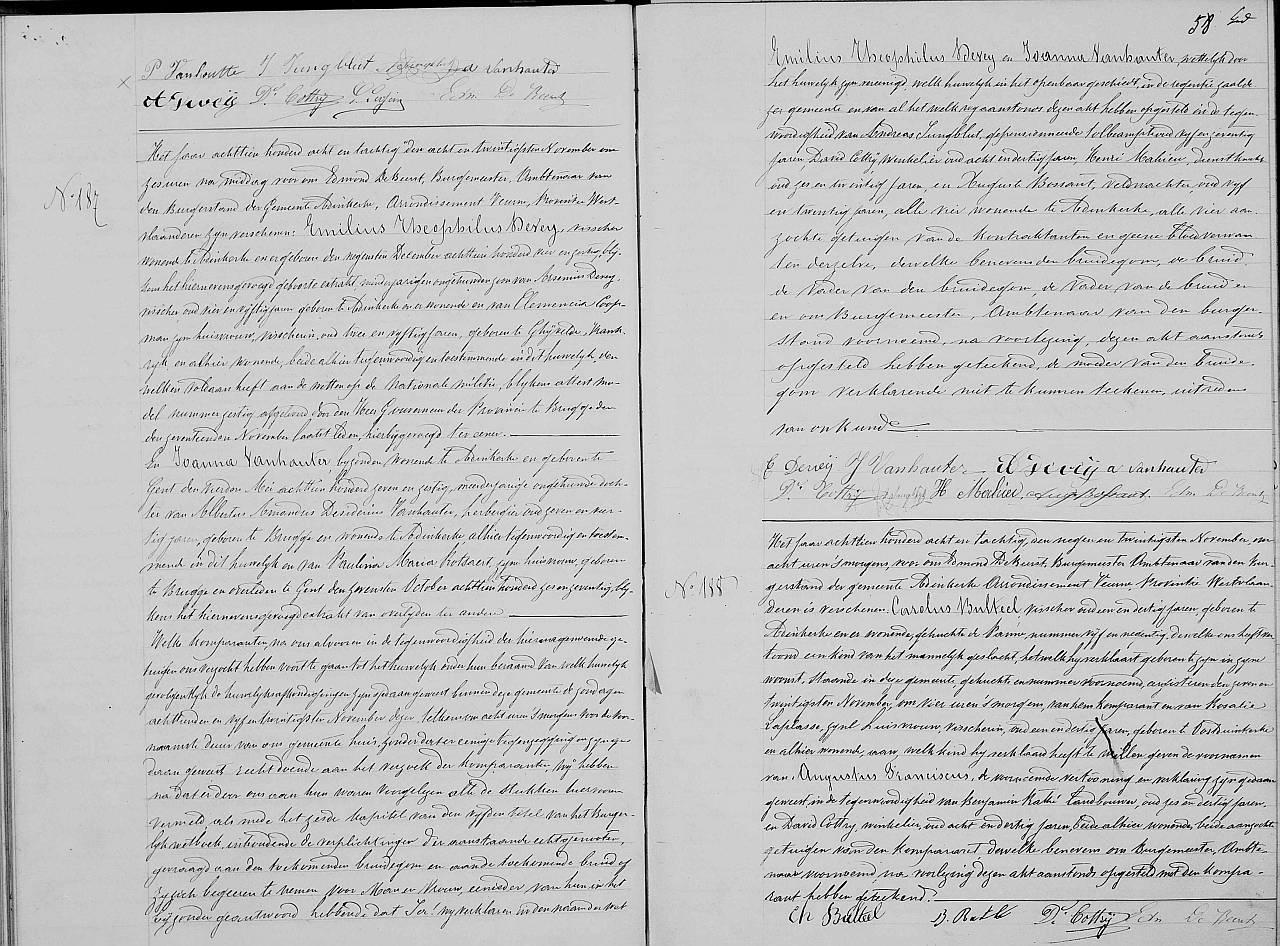 P Vanhoutte J Jungblut A Vanhauter
A Devey Dd Cottry Edm De Beerst
N.º 187
Het jaar achttien honderd acht en tachtig den acht en twintigsten November om
zes uren na middag voor ons Edmond De Beerst, Burgemeester, Ambtenaar van
den Burgerstand der Gemeente Adinkerke, Arrondissement Veurne, Provintie West-
vlaanderen zyn verschenen: Emilius Theophilus Devey, visscher
wonende te Adinkerke en er geboren den negensten December achttien honderd vier en zestig, bly-
kens het hiernevensgevoegd geboorte extrakt, minderjarigen ongehuwden zoon van Arsenius Devey,
visscher oud vier en vyftig jaren geboren te Adinkerke en er wonende en van Clemencia Coop-
man zyne huisvrouw, visscherin, oud twee en vyftig jaren, geboren te Ghyvelde, Frank-
ryk en alhier wonende, beide alhier tegenwoordig en toestemmende in dit huwelyk, den
welken voldaan heeft aan de wetten op de Nationale militie, blykens attest mo-
del nummer zestig afgeleverd door den Heer Gouverneur der Provincie te Brugge den
den zeventienden November laatst leden, hierbygevoegd ter eener.
En Joanna Vanhauter byzonder wonende te Adinkerke en geboren te
Gent den vierden Mei achttien honderd zeven en zestig, minderjarige ongehuwde doch-
ter van Albertus Amandus Desiderius Vanhauter, herbergier oud zeven en veer-
tig jaren, geboren te Brugge en wonende te Adinkerke alhier tegenwoordig en toestem-
mende in dit huwelyk en van Paulina Maria Rotsaert, zyne huisvrouw, geboren
te Brugge en overleden te Gent den zevensten October achttien honderd zes en zeventig, bly-
kens het hiernevensgevoegd extrakt van overlyden ter andere
Welke komparanten na ons alvooren in de tegenwoordigheid der hiernagenoemde ge-
tuigen ons verzocht hebben voort te gaan tot het huwelyk onder hun beraamd van welk huwelyk
gevolgentlyk de huwelyksafkondigingen zyn gedaan geweest binnen deze gemeente de zondagen
achttienden en vyfentwintigsten November dezer telkens om acht uren 's morgens voor de voor-
naamste deur van ons gemeente huis, zonder dat er eenige tegenzegging en zyn ge-
daan geweest recht doende aan het verzoek der komparanten, Wy hebben
na dat er door ons aan hun waren voorgelezen alle de stukken hiervoren
vermeld, als mede het zesde kapittel van den vyfden titel van het Burger-
lyk wetboek, inhoudende de verplichtingen der aanstaande echtgenooten,
gevraagd aan den toekomenden bruidegom en aande toekomende bruid of
zy zich begeeren te nemen voor Man en Vrouw, eenieder van hun in het
byzonder geantwoord hebbende dat Ja! wy verklaren in den naam der wet
58
Emilius Theophilus Devey en Joanna Vanhauter, wettelyk door
het huwelyk zyn vereenigd, welk huwelyk in het openbaar geschied, in de regentie zaal de-
zer gemeente en van al het welk wy aanstonds dezen akt hebben opgesteld in de tegen-
woordigheid van Andreas Jungblut, gepensionneerde tolbeampt oud vyf en zeventig
jaren David Cottry winkelier oud acht en dertig jaren, Henri Mahieu, dienstknecht
oud zes en twintig jaren, en Auguste Bossaert, veldwachter oud vyf
en twintig jaren, alle vier wonende te Adinkerke, alle vier aan-
zochte getuigen van de kontraktanten en geene bloedverwan-
ten derzelve, dewelke benevens den bruidegom, de bruid,
de vader van den bruidegom, de vader van de bruid en
en ons Burgemeester, Ambtenaar van den burger-
stand voornoemd, na voorlezing, dezen akt aanstonds
opgesteld hebben geteekend, de moeder van den bruide-
gom verklarende niet te kunnen teekenen, uit reden
van onkunde
E Devey J Vanhauter A Devey A Vanhauter
Dd Cottry Jungblut H Mahieu Aug Bossaert Edm De Beerst
N.º 188
Het jaar achttien honderd acht en tachtig, den negen en twintigsten November, om
acht uren 's morgens, voor ons Edmond De Beerst, Burgemeester Ambtenaar van den Bur-
gerstand der gemeente Adinkerke Arrondissement Veurne Provintie Westvlaan-
deren is verschenen Carolus Bulteel visscher oud een en dertig jaren, geboren te
Adinkerke en er wonende, gehuchte de Panne, nummer vyf en negentig, dewelke ons heeft ver-
toond een kind van het mannelyk geslacht, hetwelk hy verklaart geboren te zyn in zyne
woonst, staande in deze gemeente gehuchte en nummer voornoemd, gisteren den zeven en
twintigsten November, om vier uren 's morgens, van hem komparant en van Rosalie
Laplasse, zyne huisvrouw, visscherin, oud een en dertig jaren, geboren te Oostduinkerke
en alhier wonende, aan welk kind hy verklaard heeft te willen geven de voornamen
van Augustus Franciscus, de voornoemde vertooning en verklaring zyn gedaan
geweest, in de tegenwoordigheid van Benjamin Rathé Landbouwer, oud zes en dertig jaren,
en David Cottry, winkelier, oud acht en dertig jaren, beide alhier wonende, beide aangezochte
getuigen van den komparant dewelke benevens ons Burgemeester, Ambte-
naar voornoemd, na voorlezing dezen akt aanstonds opgesteld met den kompa-
rant hebben geteekend.
Ch Bulteel B. Rathé Dd Cottry Edm De Beerst